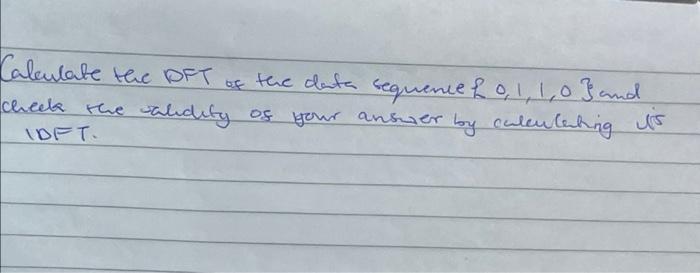 Calculate the DFT of the data sequence { 0, 1, 1, 0 } and
check the validity of your answer by calculating its
IDFT.